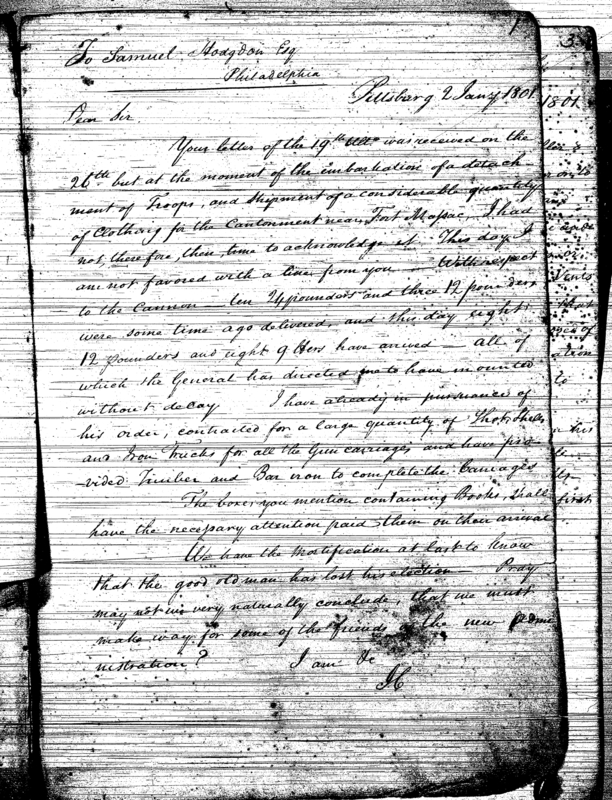 1
To Samuel Hodgdon Esq
Philadelphia
Pittsburg 2 Jany 1801
Dear Sir
Your letter of the 19th Ulto was received on the
26th but at the moment of the embarkation of a detach
ment of Troops, and shipment of a considerable quantity
of Clothing for the Cantonment near Fort Massac, I had
not, therefore, then, time to acknowledge it. This day I
am not favored with a line from you — With respect
to the Cannon — ten 24 pounders and three 12 pounders
were some time ago delivered, and this day eight
12 pounders and eight 9 ders have arrived — all of
which the General has directed me to have mounted
without delay I have already in pursuance of
his order, contracted for a large quantity of Shot, Shells
and Iron Trucks for all the Gun carriages and have pro
-vided Timber and Bar iron to complete the Carriages
The boxes you mention containing Books, shall
have the necessary attention paid them on their arrival
We have the Mortification at last to know
that the good old man has lost his election — Pray
may not we very naturally conclude, that we must
make way for some of the friends the new Admi
nistration? I am &c
3
1801